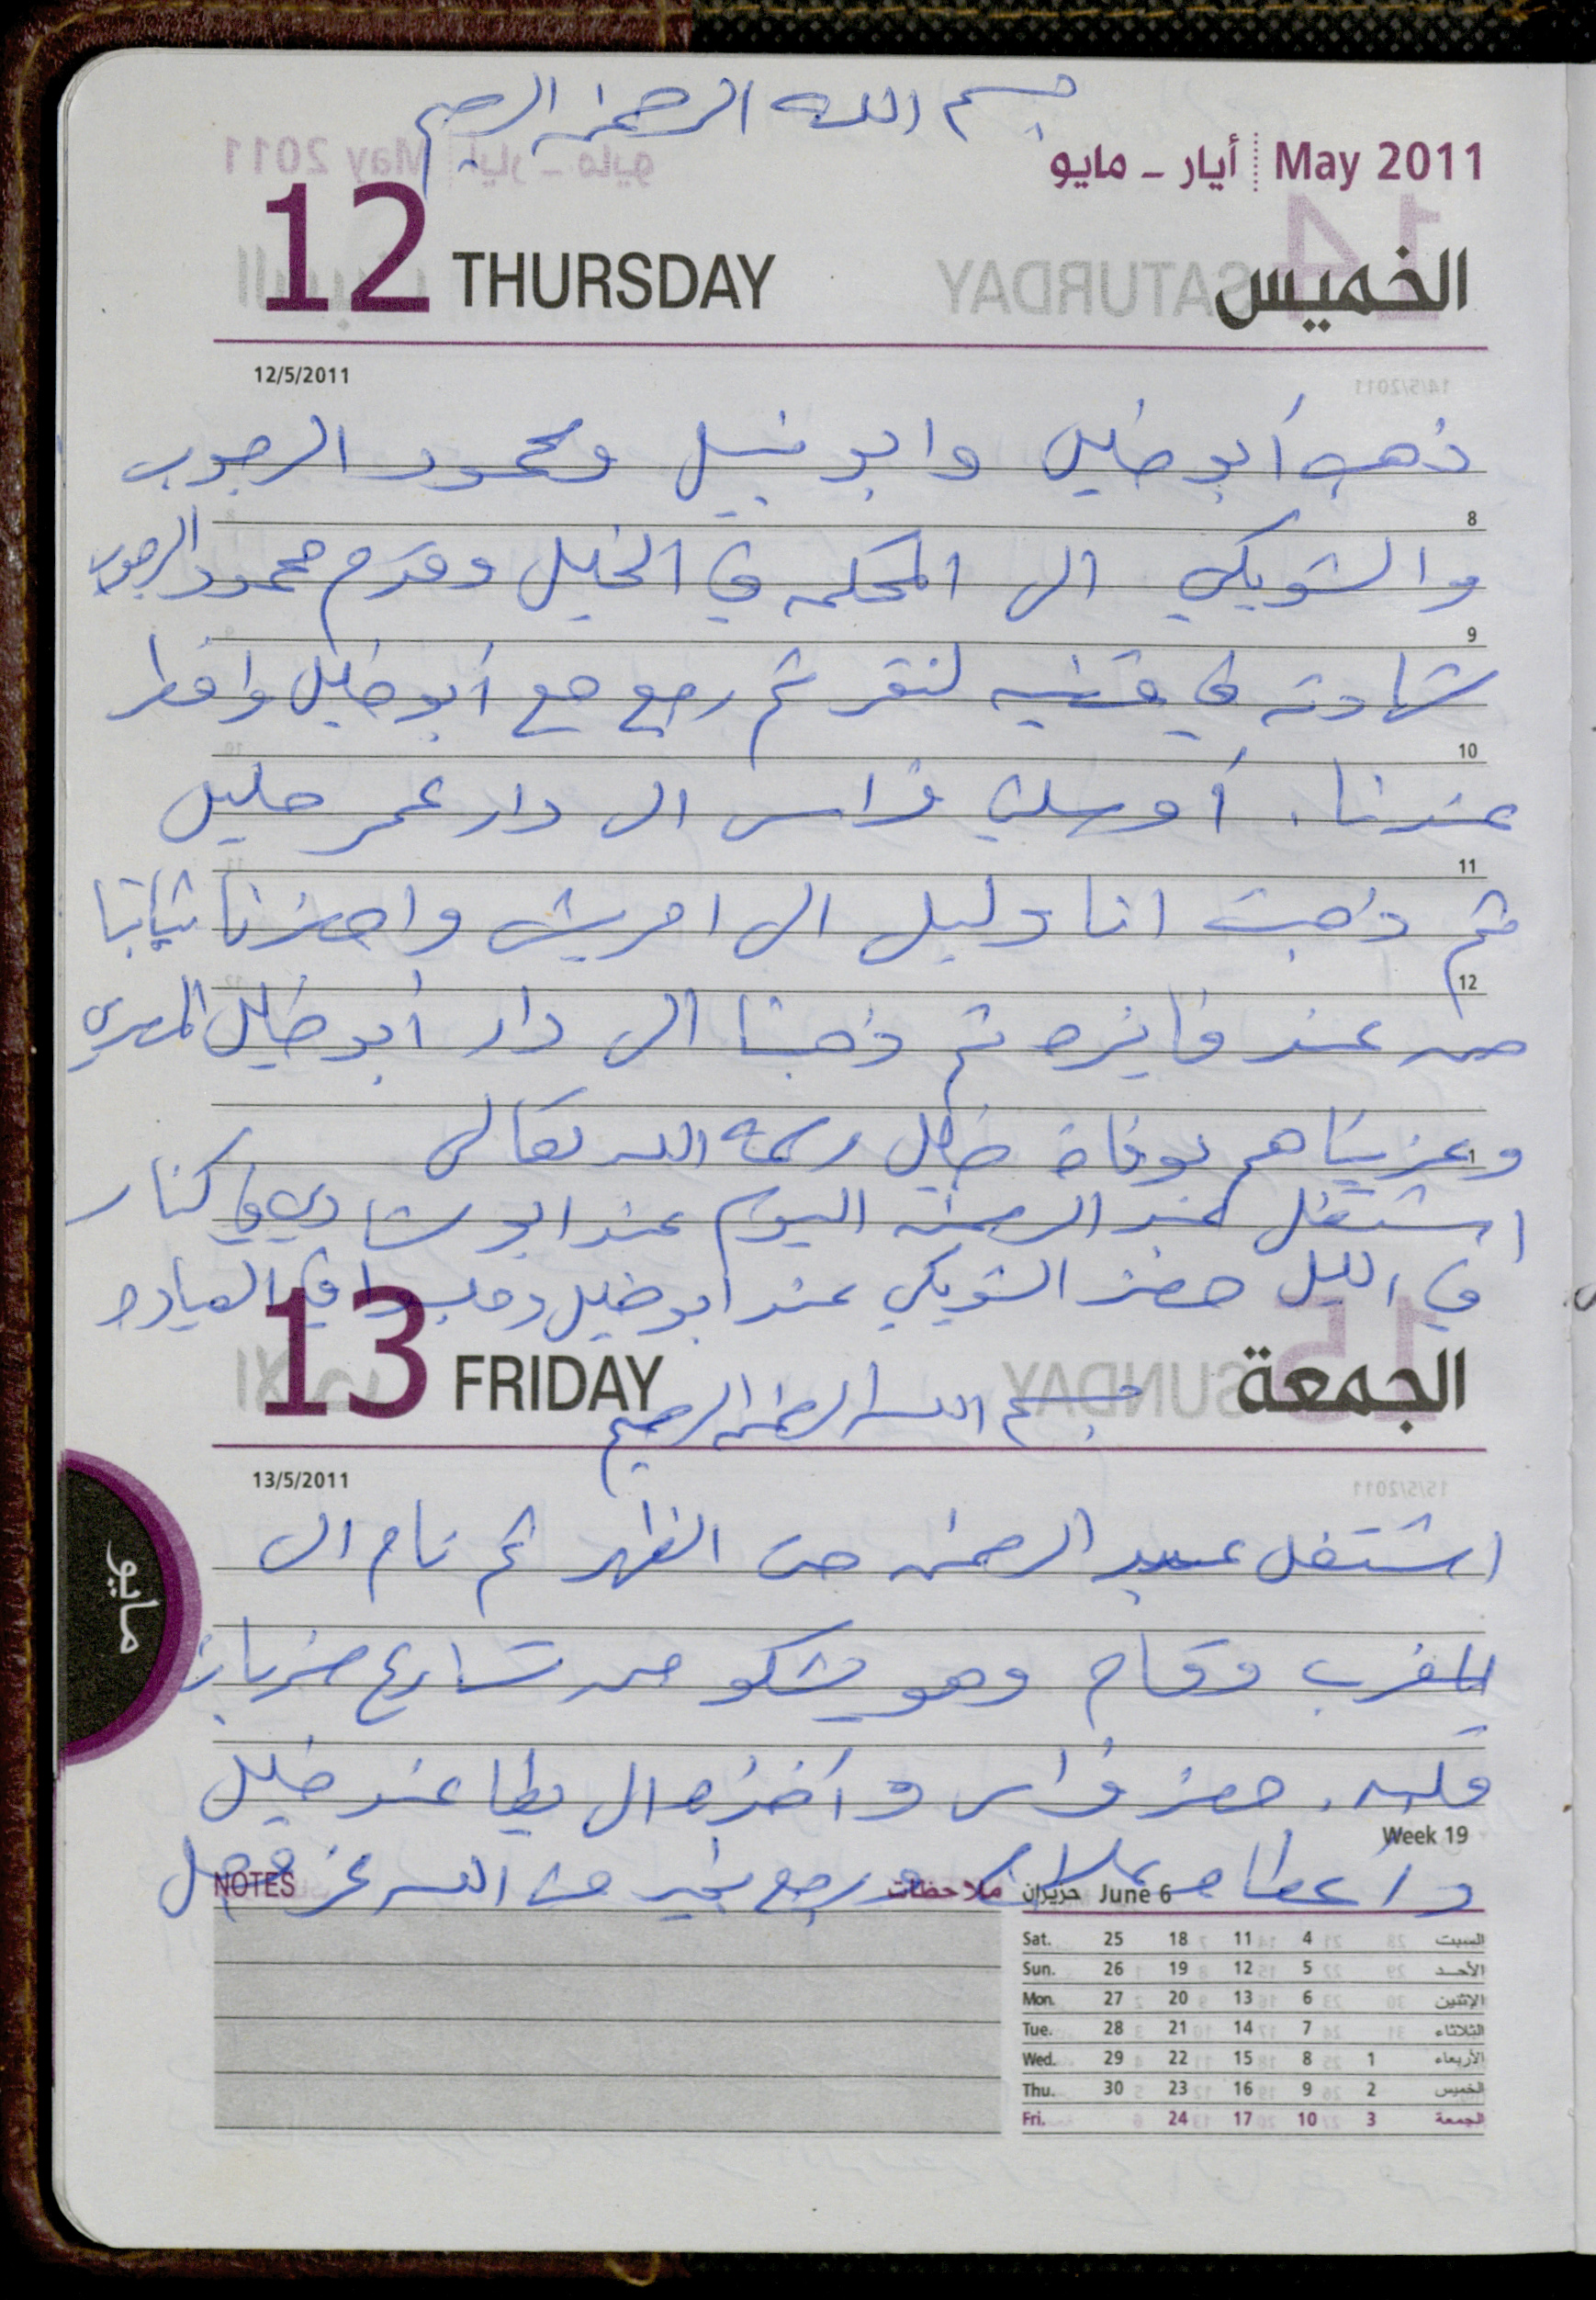 بسم الله الرحمن الرحيم
May 2011 أيار - مايو
12 THURSDAY الخميس
12/5/2011
ذهب أبو خليل وابو نبيل ومحمود الرجوب
8
والشويكي الى المحكمه في الخليل وقدم محمود الرجوب
9
شهادته في قضيه لنقر ثم رجع مع أبو خليل وافطر
10
عندنا. أوصلت فراس الى دار عمر خليل
11
ثم ذهبت انا ودليل الى امريش واحضرنا
12
من عند فايزه ثم ذهبنا الى دار أبو خليل المصري
1
وعزيناهم بوفاة خليل رحمه الله تعالى
اشتغل عبد الرحمن اليوم عند ابو شادي في كنار
في الليل حضر الشويكي عند ابو خليل وجلسوا في العياده
13 FRIDAY الجمعة
بسم الله الرحمن الرحيم
13/5/2011
اشتغل عبد الرحمن حتى الظهر ثم نام الى
المغرب وقام وهو يشكو من تسارع ضربات
قلبه. حضر فراس وأخذه الى يطا عند خليل
Week 19
وأعطاه علاج ورجع بخير من الله عز وجل
NOTES ملاحظات
حزيران June 6
Sat. 25 18 11 4 السبت
Sun. 26 19 12 5 الأحد
Mon. 27 20 13 6 الإثنين
Tue. 28 21 14 7 الثلاثاء
Wed. 29 22 15 8 1 الأربعاء
Thu. 30 23 16 9 2 الخميس
Fri. 24 17 10 3 الجمعة
مايو